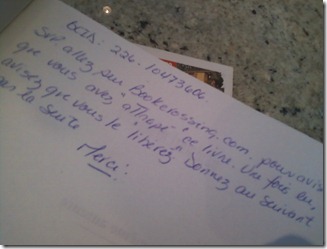 BCID: 226-10473606
SVP allez sur Bookcrossing.com pour avis
que vous avez "attrapé" ce livre. Une fois lu,
avisez que vous le "libérez". Donnez au suivant
Merci!